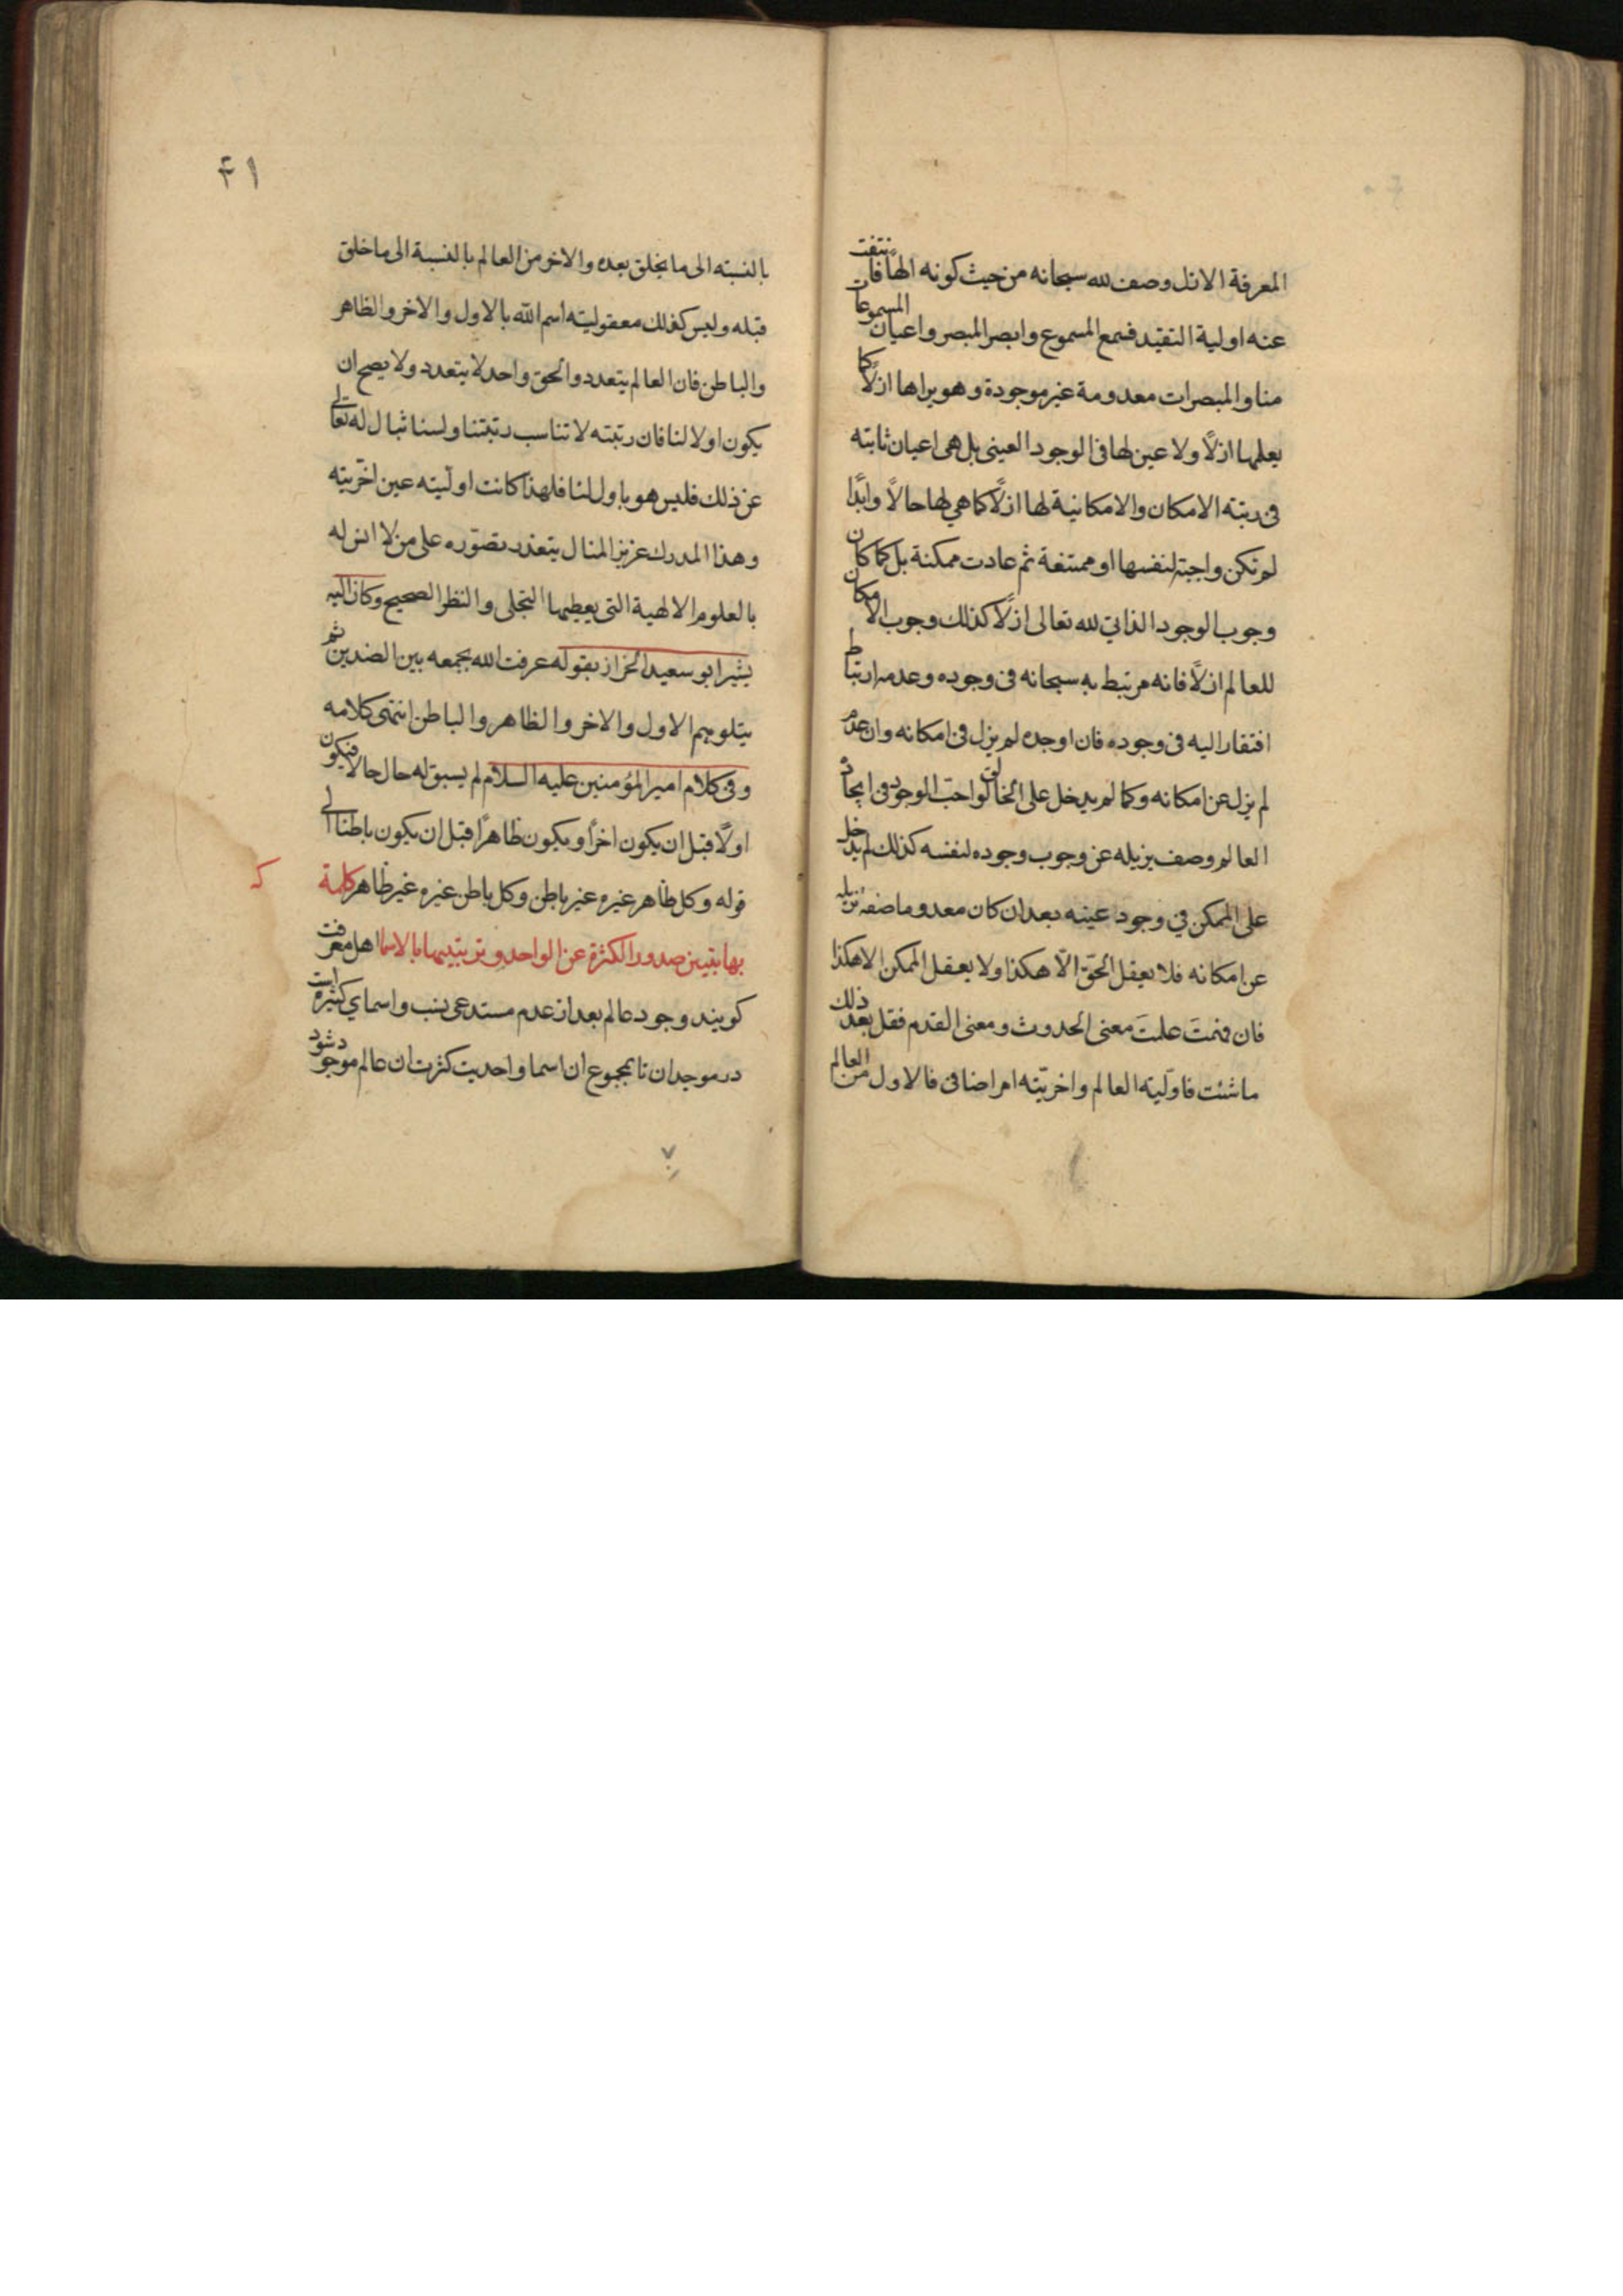 المعرفة الازل وصف لله سبحانه من حيث كونه الهًا فانتفت
عنه اولية التقيد فسمع المسموع وابصر المبصر واعيان المسموعات
منا والمبصرات معدومة غير موجودة وهو يراها ازلًا كما
يعلمها ازلًا ولا عين لها فى الوجود العينى بل هى اعيان ثابته
فى رتبته الامكان والامكانية لها ازلًا كما هي لها حالًا وابدًا
لم تكن واجبة لنفسها او ممتنعة ثم عادت ممكنة بل كما كان
وجوب الوجود الذاتي لله تعالى ازلًا كذلك وجوب الامكان
للعالم ازلًا فانه مرتبط به سبحانه فى وجوده وعدمه ارتباط
افتقار اليه فى وجوده فان اوجده لم يزل فى امكانه وان عدم
لم يزل عن امكانه وكما لم يدخل على الخالق الواجب الوجود فى ايجاد
العالم وصف يزيله عن وجوب وجوده لنفسه كذلك لم يدخل
على الممكن في وجود عينه بعد ان كان معدوما صفة تزيله
عن امكانه فلا يعقل الحقّ الّا هكذا ولا يعقل الممكن الا هكذا
فان فهمتَ علمتَ معنى الحدوث ومعنى القدم فقل بعد ذلك
ما شئت فاوّلية العالم واخريّته امر اضافى فالاول من العالم
۴۱
بالنسبته الى ما يخلق بعده والاخر من العالم بالنسبة الى ما خلق
قبله وليس كذلك معقولية اسم الله بالاول والاخر والظاهر
والباطن فان العالم يتعدد والحق واحد لا يتعدد ولا يصح ان
يكون اولا لنا فان رتبته لا تناسب رتبتنا ولسنا ثبال له تعالى
عن ذلك فليس هو باول لنا فلهذا كانت اوليته عين اخرّيته
وهذا المدرك عزيز المنال يتعذر تصوّره على من لا انس له
بالعلوم الالهية التى يعطيها التجلى والنظر الصحيح وكان اليه
يشير ابو سعيد الخراز بقوله عرفت الله بجمعه بين الضدين ثم
يتلو هم الاول والاخر والظاهر والباطن انتهى كلامه
وفى كلام امير المؤمنين عليه السلام لم يسبق له حال حالا فيكون
اولًا قبل ان يكون اخرًا ويكون ظاهرًا قبل ان يكون باطنا الى
قوله وكل ظاهر غيره غير باطن وكل باطن غيره غير ظاهر كلمة
بها يتبين صدور الكثرة عن الواحد وترتيبها بالاسما اهل معرفت
كويند وجود عالم بعد از عدم مستدعى نسب واسماي كثيره است
در موجد ان تا بمجموع ان اسما واحديت كثرت ان عالم موجود شود